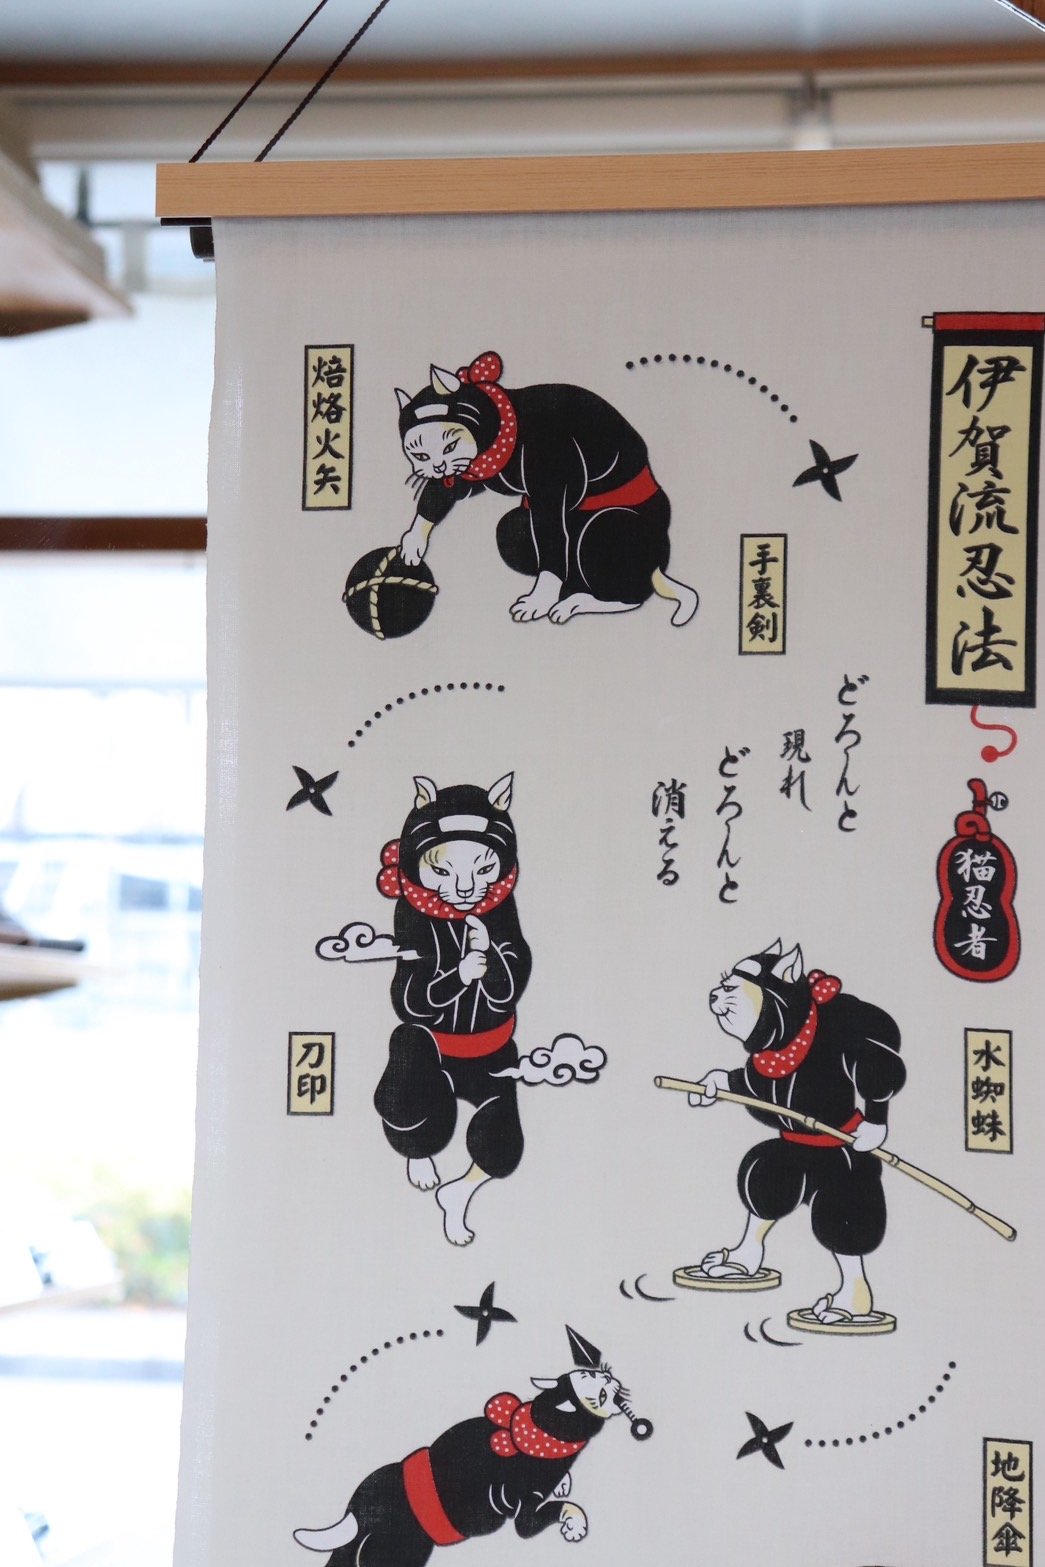 伊賀流忍法
猫忍者
手裏剣
焙烙火矢
どろ〜んと
現れ
どろ〜んと
消える
水蜘蛛
刀印
地降傘